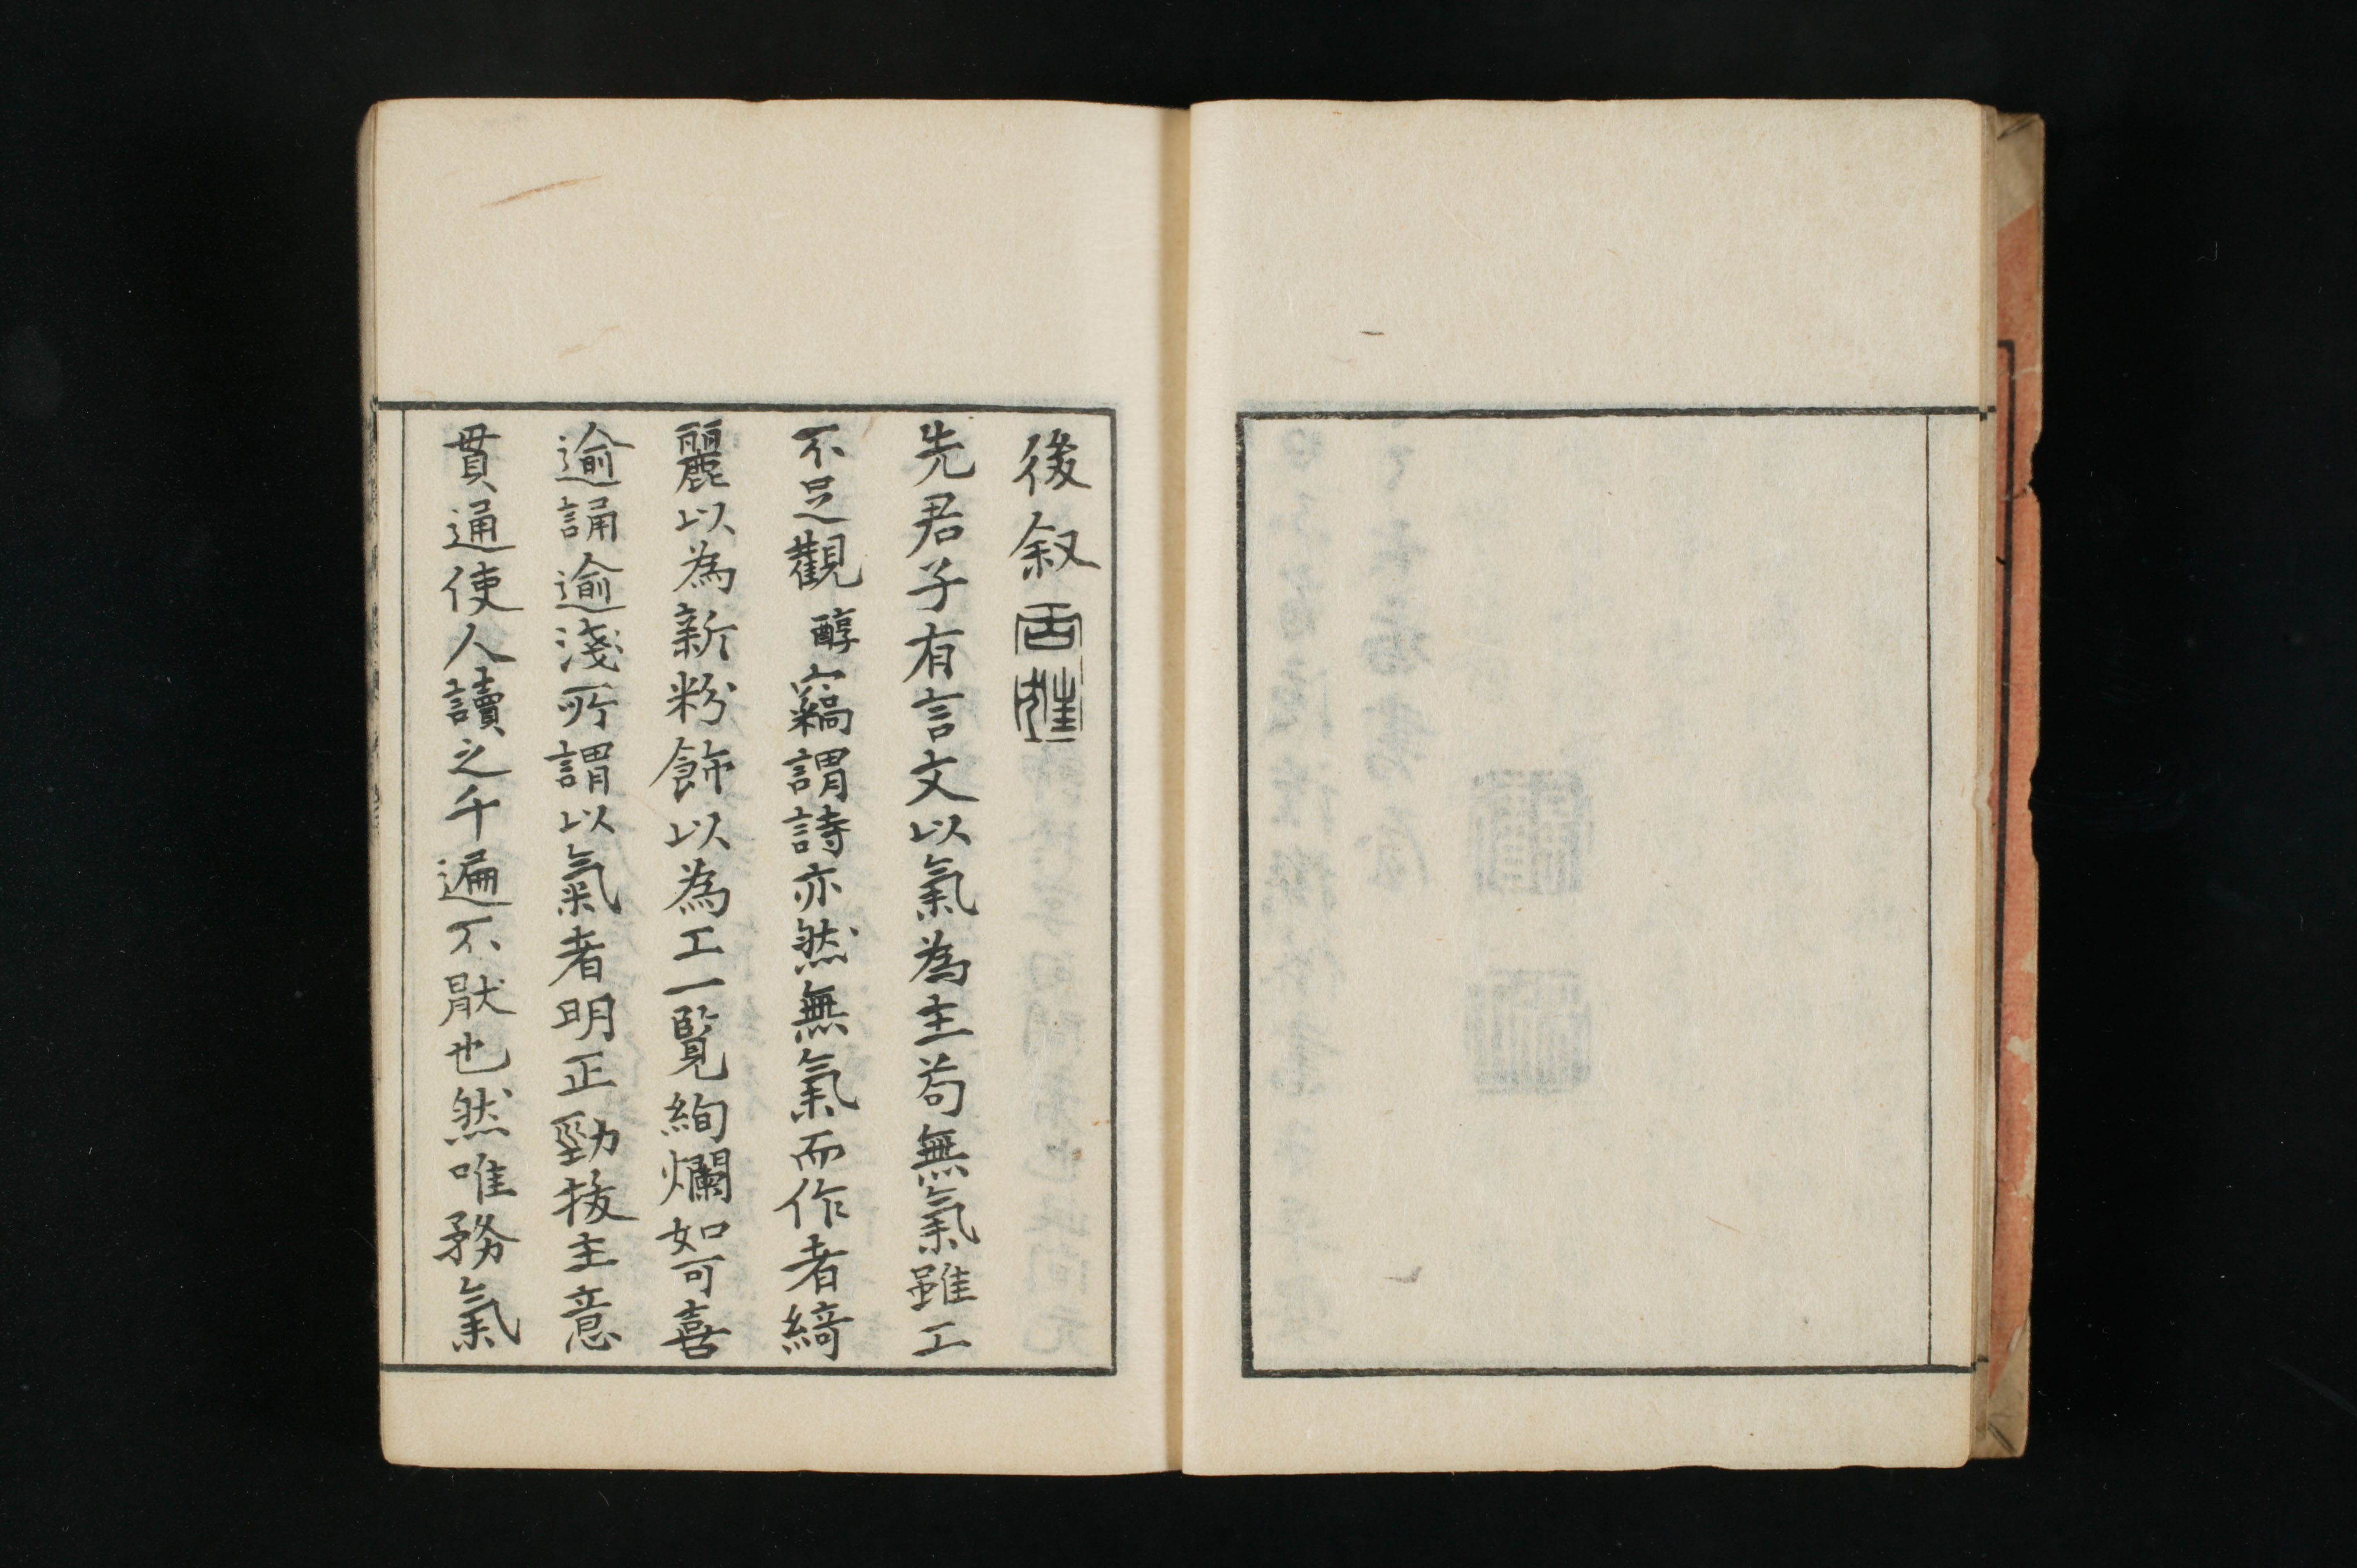 後叙
先君子有言文以氣為主苟無氣雖工
不足觀醇竊謂詩亦然無氣而作者綺
麗以為新粉飾以為工一覧絢爛如可喜
逾誦逾淺所謂以氣者明正勁抜主意
貫通使人讀之千遍不猒也然唯務氣